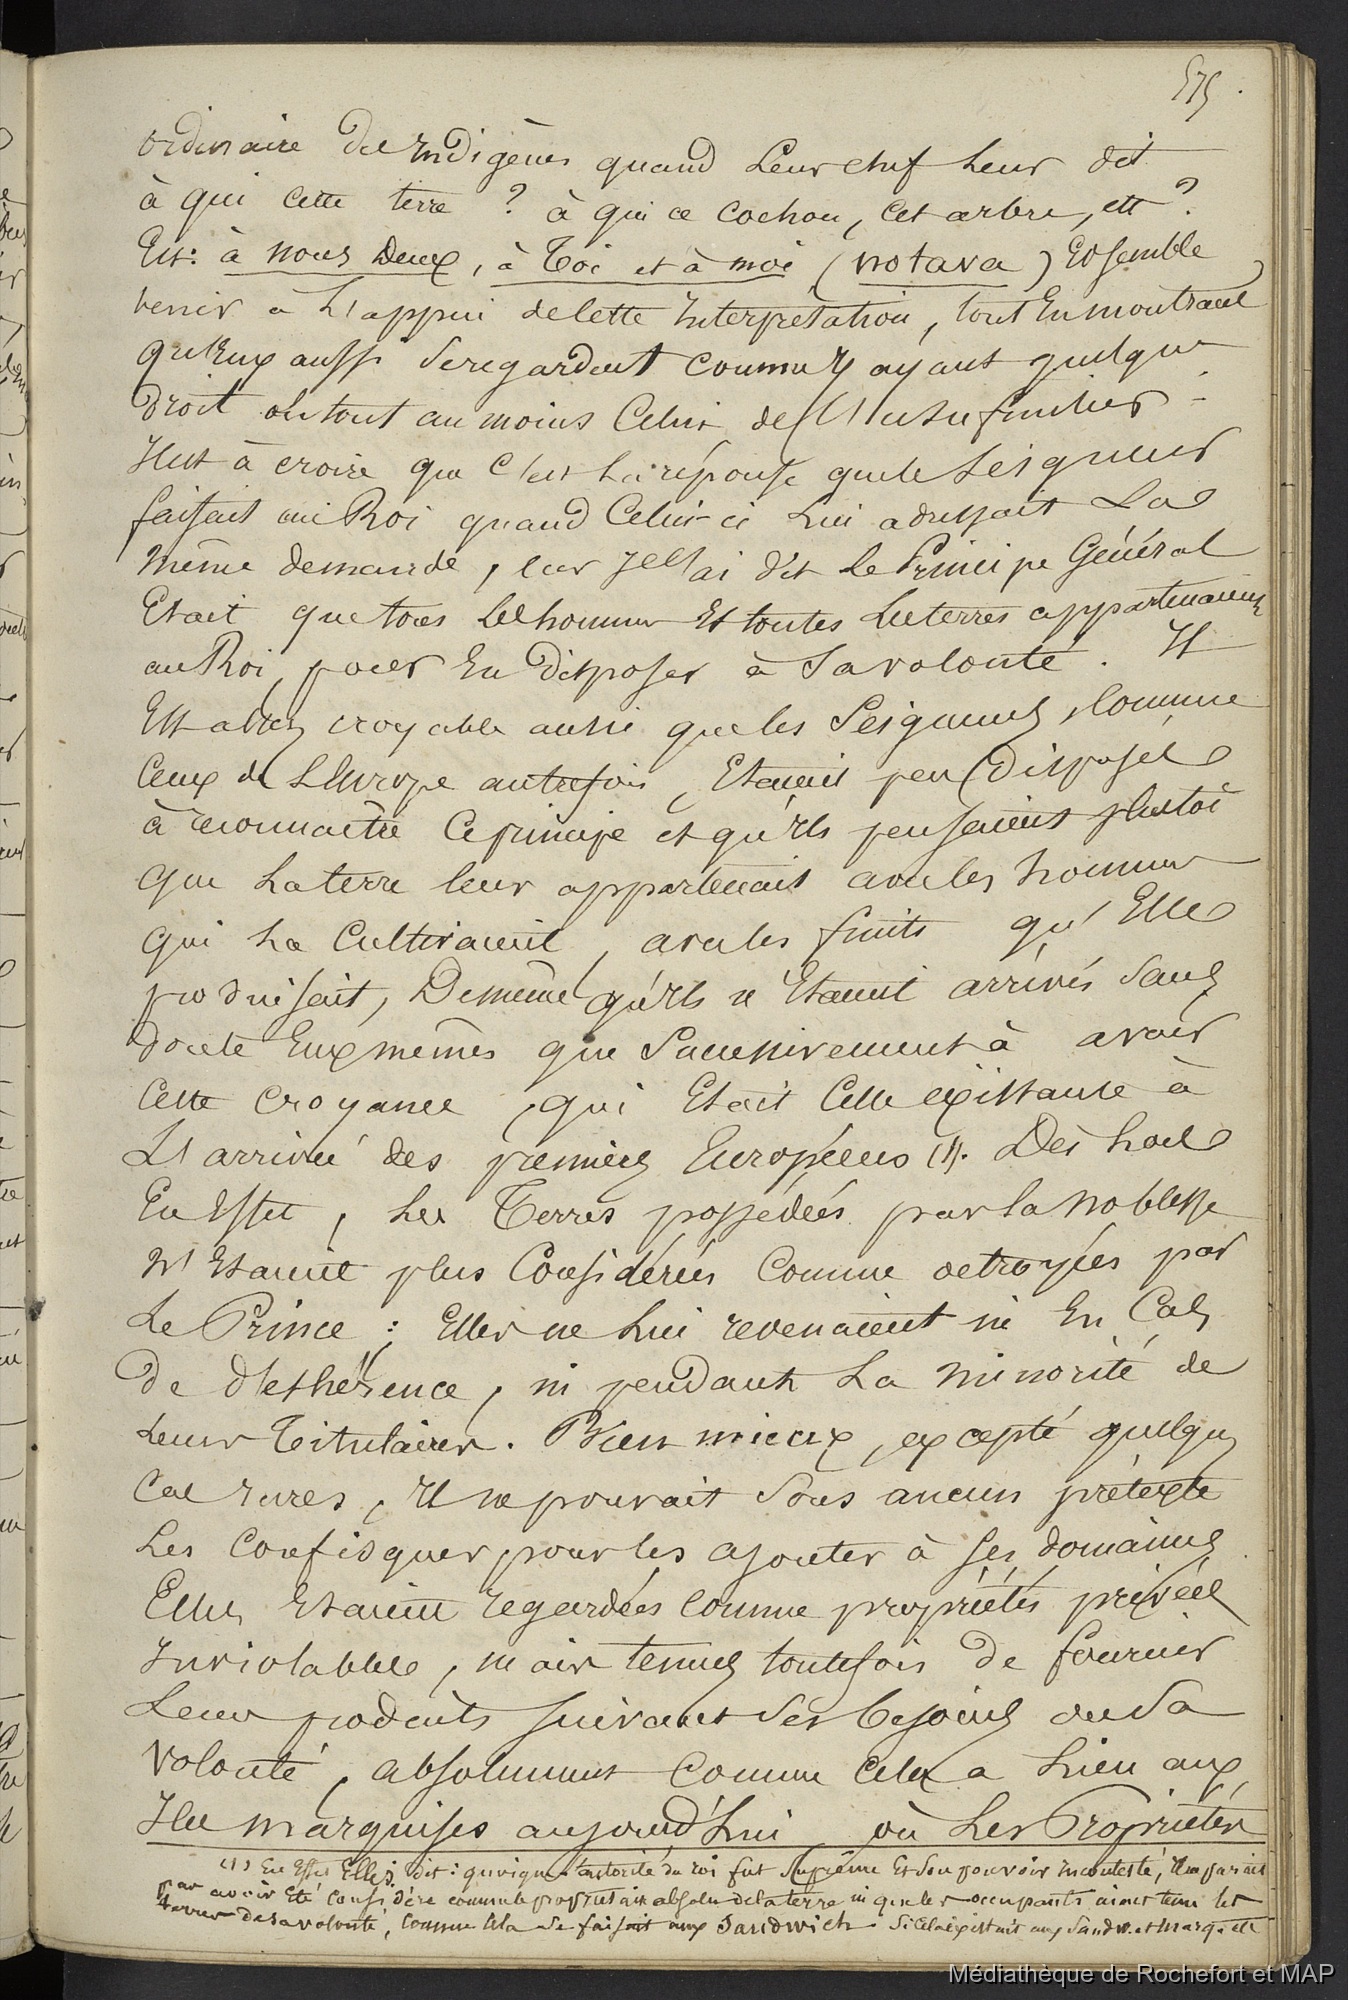 575.
ordinaire des Indigènes quand Leur chef Leur dit
à qui cette terre ? à qui ce cochon, cet arbre, ett ?
Est : à nous Deux, à Toi et à moi (notava) Ensemble
venir à L'appui de cette Interprétation, tout En montrant
qu'Eux aussi se regardent comme Ys ayant quelque
droit ou tout au moins Celui de L'usufruitier -
Il est à croire que c'est La réponse que le Seigneur
faisait au Roi quand Celui-ci Lui adressait La
même demande, car Je l'ai dit Le Principe Général
Etait que tous Les hommes Et toutes Les terres appartenaient
au Roi, pour En Disposer à Sa volonté. Il
Est assez croyable aussi que les Seigneurs, Comme
Ceux de L'Europe autrefois, Etaient peu Disposés
à reconnaître Ce principe et qu'Ils pensaient plustôt
que La terre leur appartenait avec les hommes
qui La Cultivaient, avec les fruits qu'Elle
produisait, De même qu'Ils n'Etaient arrivés Sans
doute Eux mêmes que Successivement à avoir
Cette croyance, qui Etait Celle éxistante à
L'arrivée des premiers Européens (1). Dès Lors
En Effet, Les Terres possédées par La noblesse
N'Etaient plus Considérées Comme octroyées par
Le Prince : Elles ne Lui revenaient ni En Cas
De désherence, ni pendant La minorité de
Leurs Titulaires. Bien mieux, excepté quelques
Cas rares, Il ne pouvait Sous aucun prétexte
Les Confisquer pour les ajouter à Ses domaines
Elles Etaient regardées comme propriétés privées
Inviolables, mais tenues toutefois de fournir
Leurs produits suivant Ses besoins ou Sa
volonté, absolument Comme Cela a Lieu aux
Iles marquises aujourd'hui, où Les Propriétés
(1) En Effet Ellis dit : quoique l'autorité du roi fut Suprême Et Son pouvoir incontesté, Il ne parait
pas avoir Eté Considéré comme le propriétaire absolu de la terre ni que les occupants aient tenu les
terres de sa volonté, Comme Cela Se faisait aux Sandwich. Si Cela éxistait aux Sandw. et Marq. ett
Médiathèque de Rochefort et MAP